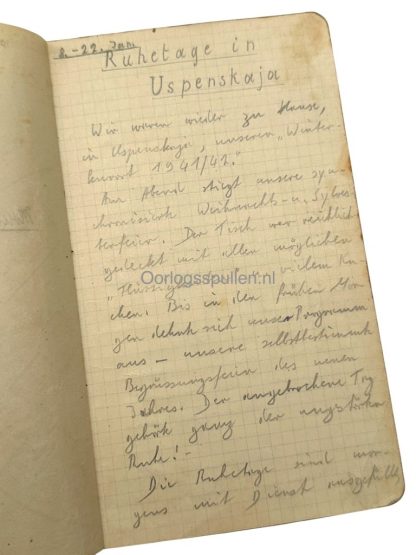 2.-22. Jan.
Ruhetage in
Uspenskaja
Wir waren wieder zu Hause,
in Uspenskaja, unseren „Winter-
kurort 1941/42."
Am Abend steigt unsere syn-
chronisierte Weihnachts- u. Sylves-
terfeier. Der Tisch war reichlich
gedeckt mit allen möglichen
vielem Ku-
Oorlogsspullen.nl
chen. Bis in den frühen Mor-
gen dehnt sich unser Programm
aus – unsere
Begrüssungsfeier des neuen
Jahres. Der angebrochene Tag
gehört ganz der
Ruhe! –
Die Ruhetage sind mor-
gens mit Dienst ausgefüllt